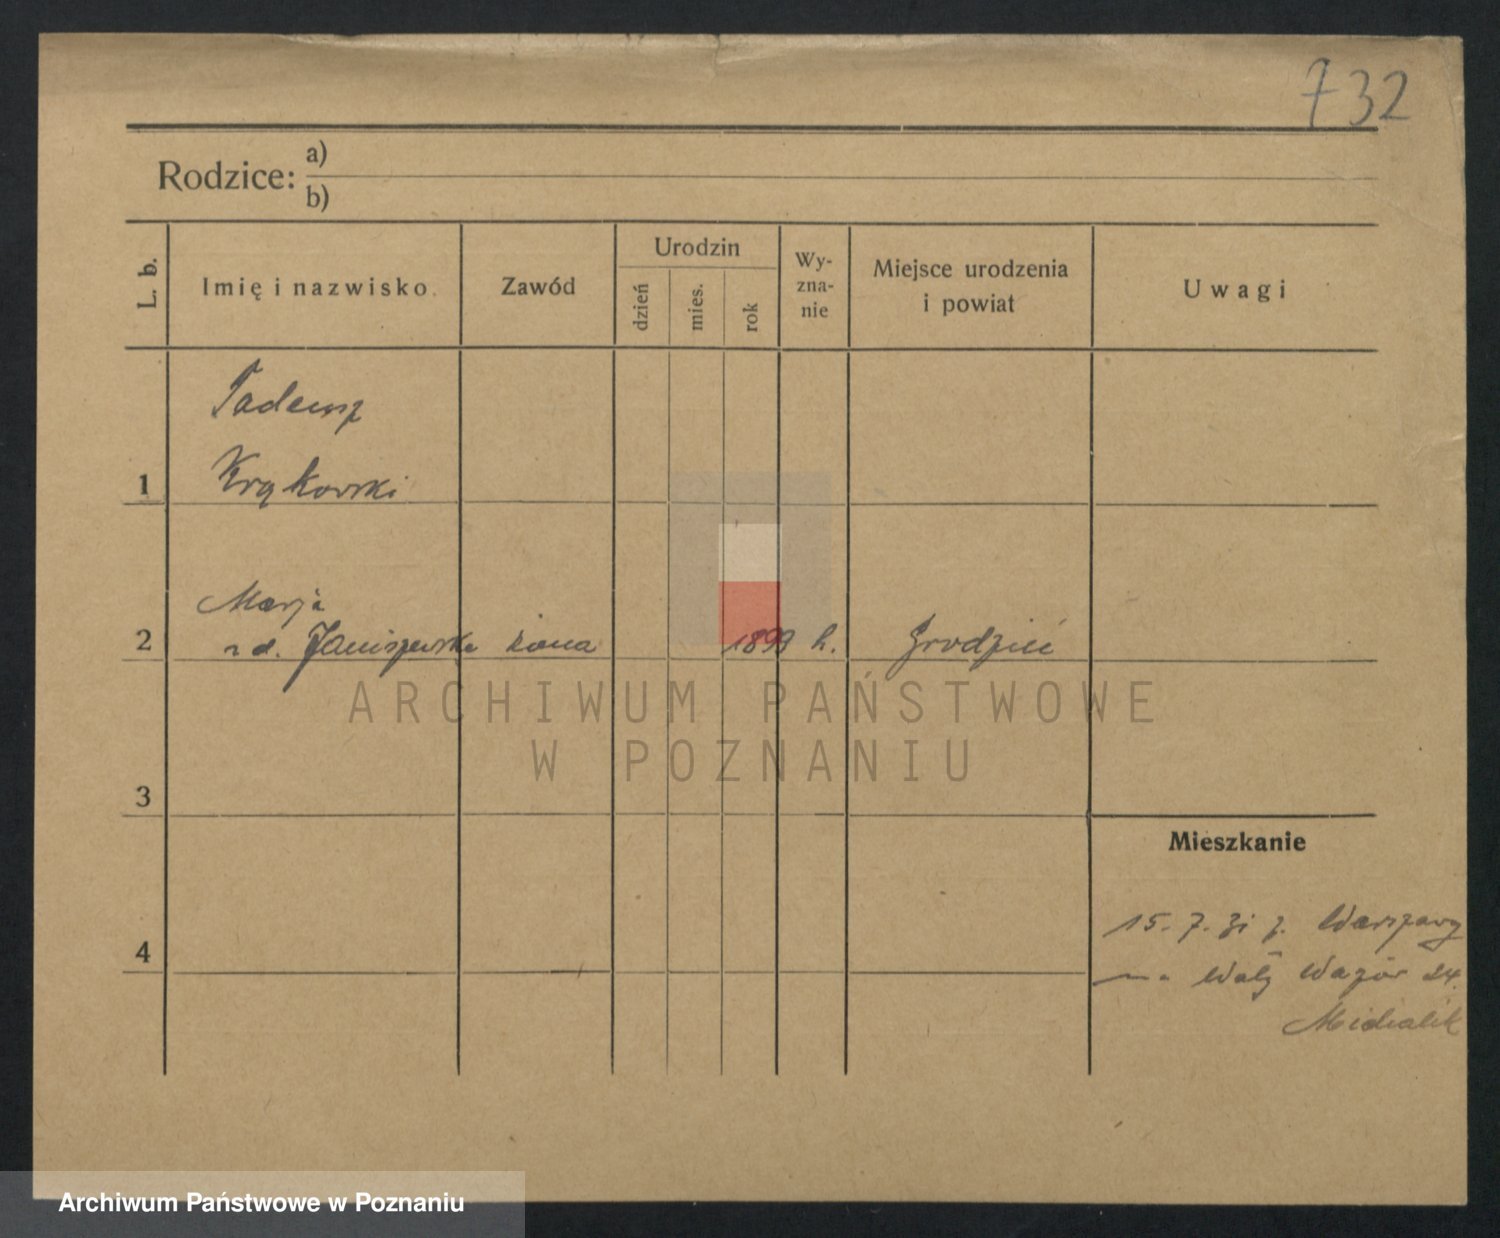 732
Rodzice: a)
b)
L. b.
Imię i nazwisko.
Zawód
Urodzin
dzień
mies.
rok
Wy-
zna-
nie
Miejsce urodzenia
i powiat
Uwagi
Tadeusz
1 Krąkowski
Marja
2 z d. Janiszewska żona 1899 h. Grodziec
3
4
Mieszkanie
15. 7. 31 z Warszawy
na Wały Wazów 24.
Michalik
ARCHIWUM PAŃSTWOWE
W POZNANIU
Archiwum Państwowe w Poznaniu